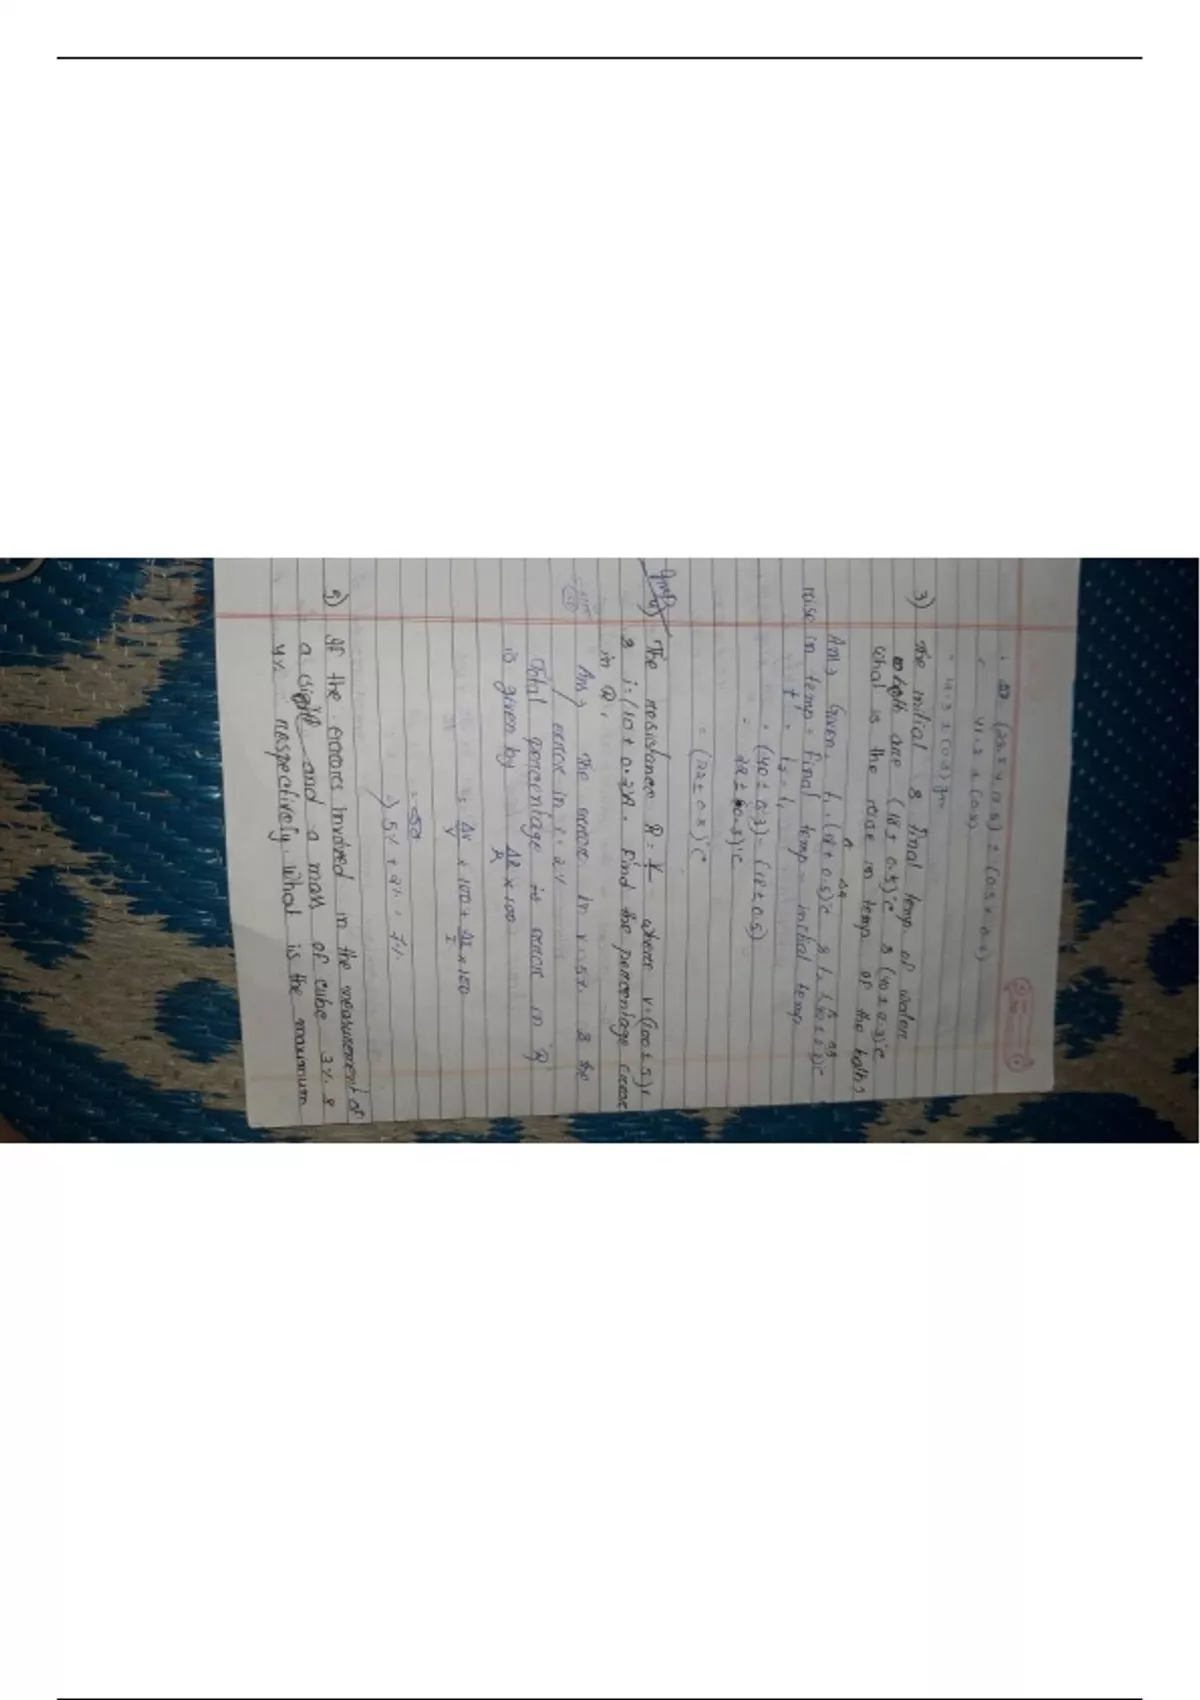 41.2 ± (0.8)
3) The initial & final temp. of water
bath are (18 ± 0.5)°C & (40 ± 0.3)°C
what is the raise in temp of the bath?
Ans → Given, t₁ = (18 ± 0.5)°C & t₂ = (40 ± 0.3)°C
raise in temp = final temp - initial temp
t = t₂ - t₁
= (40 ± 0.3) - (18 ± 0.5)
= (22 ± 0.8)°C
4) The resistance R = V/I where V = (100 ± 5)V
& i = (10 ± 0.2)A. Find the percentage error
in R.
Ans → The error in V = 5%. & the
error in I = 2%
Total percentage is error in R
is given by ΔR/R × 100
= ΔV/V × 100 + ΔI/I × 100
→ 5% + 2% = 7%.
5) If the errors involved in the measurement of
a side and a mass of cube 3%. &
4%. respectively. What is the maximum